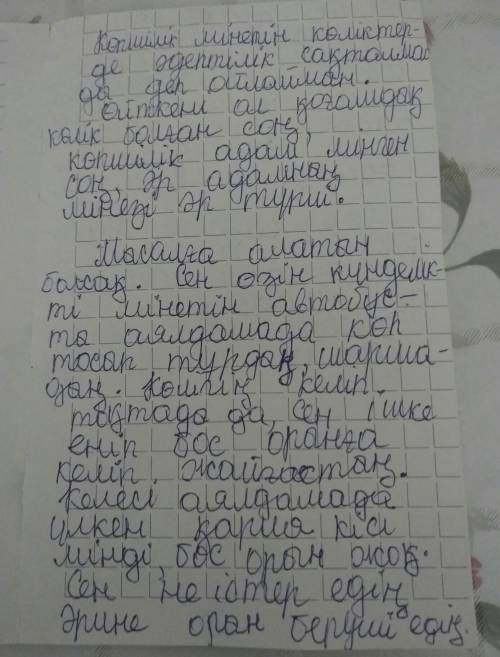 Көпшілік мінетін көліктер-
де әдептілік сақталмай
да деп ойлаймын.
Өйткені ол қоғамдақ
көлік болған соң,
көпшілік адам мінген
соң, әр адамның
мінезі әр түрлі.
Мысалға алатын
болсақ. Сен өзін күнделік-
ті мінетін автобус-
ты аялдамада көп
тосып тұрдаң, шарша-
дың. Көшпің келіп.
тоқтада да, сен ішке
еніп бос оранға
келіп жайғастаң.
Келесі аялдамада
үлкен қария кісі
мінді, бос орын жоқ.
Сен не істер едің
Әрине оран беруші едің.